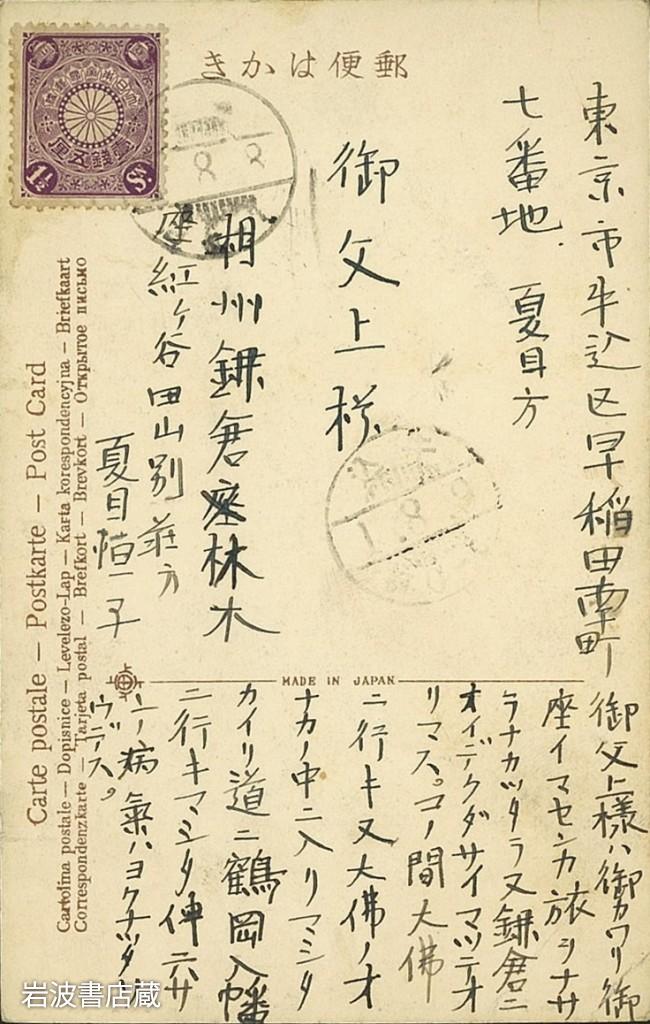 郵便はかき
東京市牛込区早稲田南町
七番地 夏目方
御父上様
相州鎌倉座林木
座紅ヶ谷田山別荘方
夏目恒子
御父上様ハ御カワリ御
座イマセンカ旅ヲナサ
ラナカツタラ又鎌倉ニ
オイデクダサイマツテオ
リマス。コノ間大佛
ニ行キ又大佛ノオ
ナカノ中ニ入リマシタ
カイリ道ニ鶴岡八幡
ニ行キマシタ伸六サ
ンノ病氣ハヨクナツタ
ヤウデス。
MADE IN JAPAN
Carte postale – Postkarte – Post Card
Cartolina postale – Dopisnice – Levelezo-Lap – Karta korespondencyjna – Briefkaart
Correspondenzkarte – Tarjeta postal – Brefkort – Brevkort – Открытое письмо
大日本帝國郵便
壹錢五厘
1½ Sn
岩波書店蔵